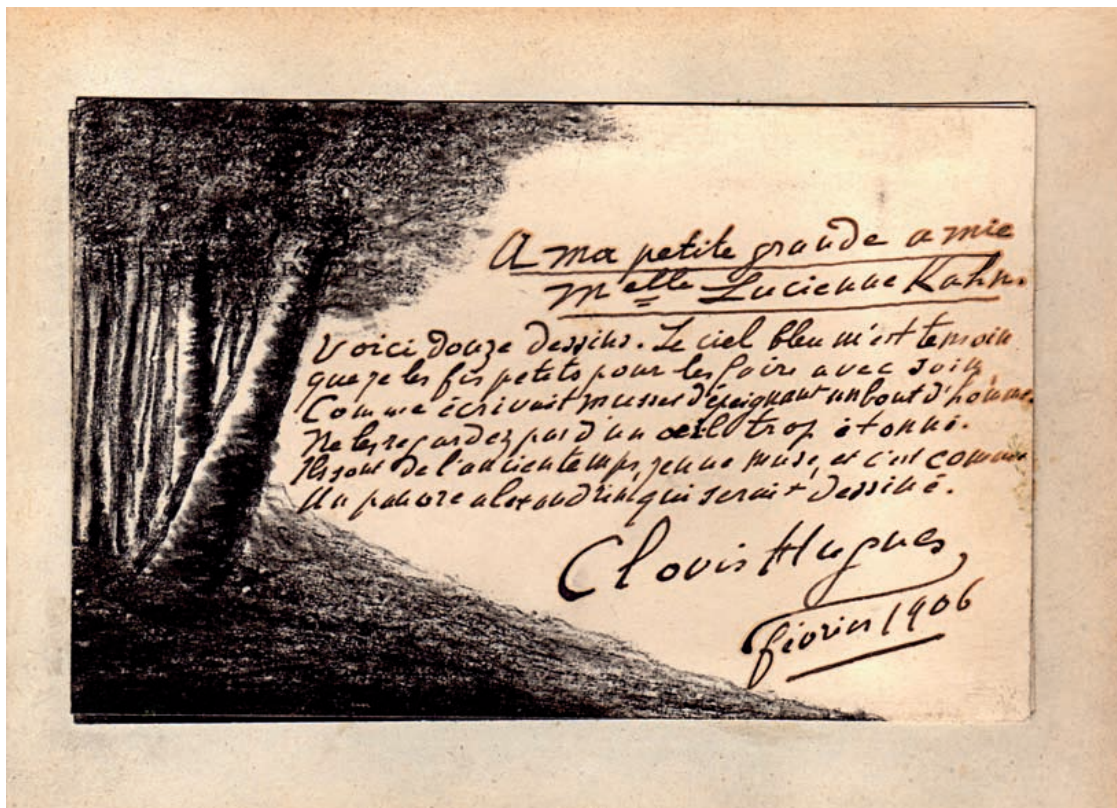 A ma petite grande amie
Melle Lucienne Kahn.
Voici douze dessins. Le ciel bleu m'est temoin
que je les fis petits pour les faire avec soin,
Comme écrivait musset dépeignant un bout d'homme.
Ne les regardez pas d'un œil trop étonné.
Ils sont de l'ancien temps, jeune muse, et c'est comme
Un pauvre alexandrin qui serait dessiné.
Clovis Hugues
février 1906